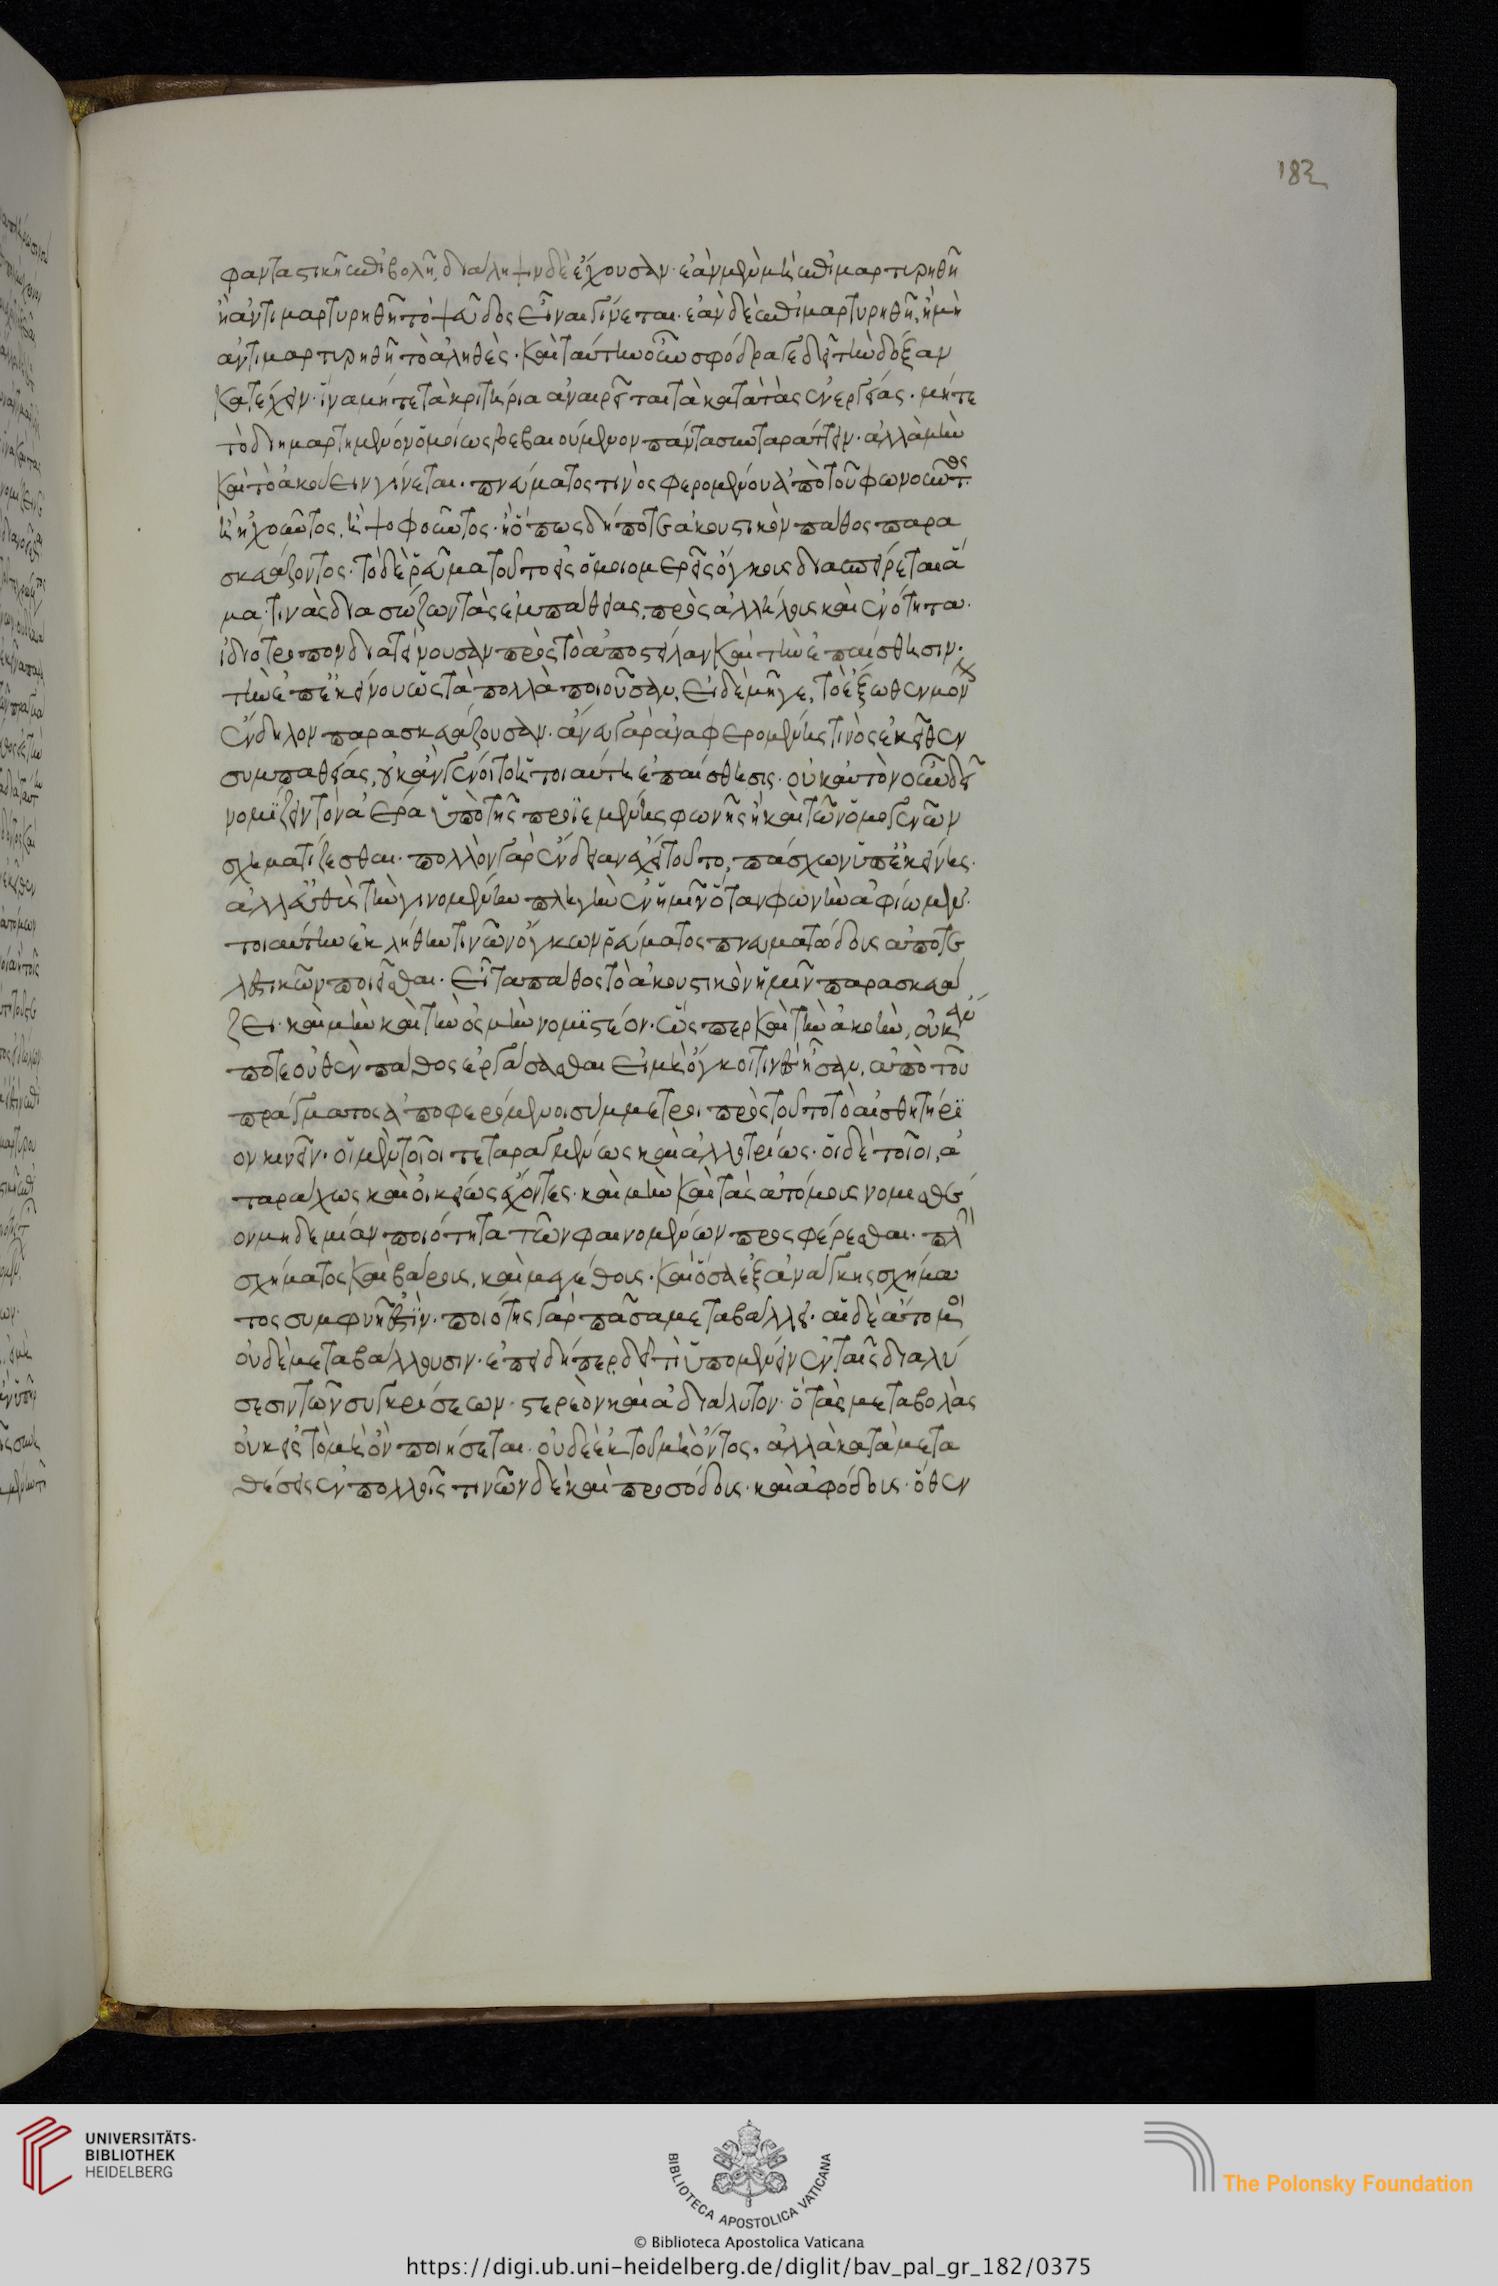 182
φανταστικῆ ἐπιβολῆ, διάληψιν δὲ ἔχουσαν· ἐὰν μὲν μὴ ἐπιμαρτυρηθῆ
ἢ ἀντιμαρτυρηθῆ τὸ ψεῦδος εἶναι γίνεται. ἐὰν δὲ ἐπιμαρτυρηθῆ, ἢ μὴ
ἀντιμαρτυρηθῆ τὸ ἀληθὲς. καὶ ταύτην οὖν σφόδρα γε δεῖ τὴν δόξαν
κατέχειν· ἵνα μήτε τὰ κριτήρια ἀναιρεῖται τὰ κατὰ τὰς ἐνεργείας. μήτε
τὸ διημαρτημένον ὁμοίως βεβαιούμενον πάντα συνταράττειν. ἀλλὰ μὴν
καὶ τὸ ἀκούειν γίνεται. πνεύματός τινος φερομένου ἀπὸ τοῦ φωνοῦντος
ἢ ἠχοῦντος, ἢ ψοφοῦντος· ἢ ὅπως δήποτε ἀκουστικὸν πάθος παρα
σκευάζοντος. τὸ δὲ ῥεῦμα τοῦτο εἰς ὁμοιομερεῖς ὄγκους διασπείρεται ἅ
μα· τινὰς διασώζοντας ἐμπαθείας, πρὸς ἀλλήλους καὶ ἑνότητα
ἰδιότροπον διατείνουσαν πρὸς τὸ ἀποστεῖλαν καὶ τὴν ἐπαίσθησιν.
τὴν ἐπ' ἐκείνου ὡς τὰ πολλὰ ποιοῦσαν, εἰ δὲ μή γε, τὸ ἔξωθεν μόνον
ἔνδηλον παρασκευάζουσαν. ἄνευ γὰρ ἀναφερομένης τινὸς ἐκεῖθεν
συμπαθείας, οὐκ ἂν γένοιτο ἡ τοιαύτη ἐπαίσθησις. οὐκ αὐτὸν οὖν δεῖ
νομίζειν τὸν ἀέρα ὑπὸ τῆς προϊεμένης φωνῆς ἢ καὶ τῶν ὁμογενῶν
σχηματίζεσθαι. πολλὴν γὰρ ἔνδειαν ἕξει τοῦτο, πάσχων ὑπ' ἐκείνης.
ἀλλ' εὐθὺς τὴν γινομένην πληγὴν ἐν ἡμῖν ὅταν φωνὴν ἀφίωμεν.
τοιαύτην ἐκλήθην τινῶν ὄγκων ῥεύματος πνευματώδους ἀποτε
λεστικῶν ποιεῖσθαι. εἶτα πάθος τὸ ἀκουστικὸν ἡμῖν παρασκευά
ζει· καὶ μὴν καὶ τὴν ὀσμὴν νομιστέον. ὥσπερ καὶ τὴν ἀκοὴν, οὐκ ἄν
ποτε οὐθὲν πάθος ἐργάσασθαι εἰ μὴ ὄγκοι τινὲς ἦσαν, ἀπὸ τοῦ
πράγματος ἀποφερόμενοι σύμμετροι πρὸς τοῦτο τὸ αἰσθητήρι
ον κινεῖν. οἱ μὲν τοῖοι τεταραγμένως καὶ ἀλλοτρίως. οἱ δὲ τοῖοι, ἀ
ταράχως καὶ οἰκείως ἔχοντες. καὶ μὴν καὶ τὰς ἀτόμους νομιστέ
ον μηδεμίαν ποιότητα τῶν φαινομένων προσφέρεσθαι. πλὴν
σχήματος καὶ βάρους, καὶ μεγέθους. καὶ ὅσα ἐξ ἀνάγκης σχήμα
τος συμφυῆ ἐστιν. ποιότης γὰρ πᾶσα μεταβάλλει. αἱ δὲ ἄτομοι
οὐδὲ μεταβάλλουσιν· ἐπειδήπερ δεῖ τι ὑπομένειν ἐν ταῖς διαλύ
σεσιν τῶν συγκρίσεων. στερεὸν καὶ ἀδιάλυτον. ὃ τὰς μεταβολὰς
οὐκ εἰς τὸ μὴ ὂν ποιήσεται. οὐδὲ ἐκ τοῦ μὴ ὄντος, ἀλλὰ κατὰ μετα
θέσεις ἐν πολλοῖς τινῶν δὲ καὶ προσόδους. καὶ ἀφόδους. ὅθεν
UNIVERSITÄTS-
BIBLIOTHEK
HEIDELBERG
BIBLIOTECA APOSTOLICA VATICANA
The Polonsky Foundation
© Biblioteca Apostolica Vaticana
https://digi.ub.uni-heidelberg.de/diglit/bav_pal_gr_182/0375